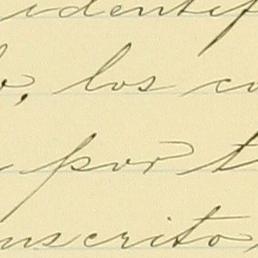 identif
, los co
por t
nscrito